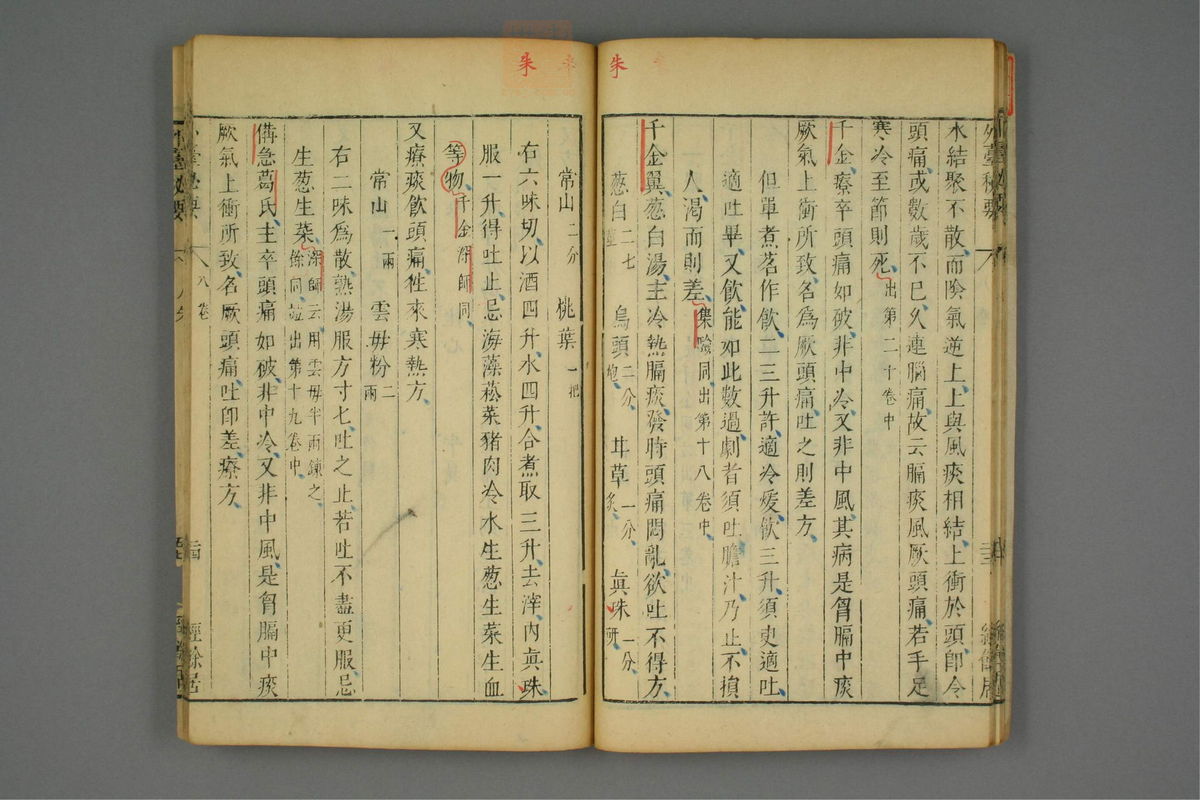 水結聚不散而陰氣逆上上與風痰相結上衝於頭即令
頭痛或數歲不已久連腦痛故云膈痰風厥頭痛若手足
寒冷至節則死出第二十卷中
千金療卒頭痛如破非中冷又非中風其病是胷膈中痰
厥氣上衝所致名為厥頭痛吐之則差方
但單煮茗作飲二三升許適冷煖飲三升須臾適吐
適吐畢又飲能如此數過劇者須吐膽汁乃止不損
人渴而則差集驗同出第十八卷中
千金翼葱白湯主冷熱膈痰發時頭痛悶亂欲吐不得方
葱白二七莖 烏頭二分炮 甘草一分炙 真珠一分研
常山二分 桃葉一把
右六味切以酒四升水四升合煮取三升去滓內真珠
服一升得吐止忌海藻菘菜豬肉冷水生葱生菜生血
等物千金深師同
又療痰飲頭痛徃來寒熱方
常山一兩 雲母粉二兩
右二味為散熟湯服方寸匕吐之止若吐不盡更服忌
生葱生菜深師云用雲母半兩鍊之
餘同並出第十九卷中
備急葛氏主卒頭痛如破非中冷又非中風是胷膈中痰
厥氣上衝所致名厥頭痛吐即差療方
外臺秘要
八卷
經餘居
朱